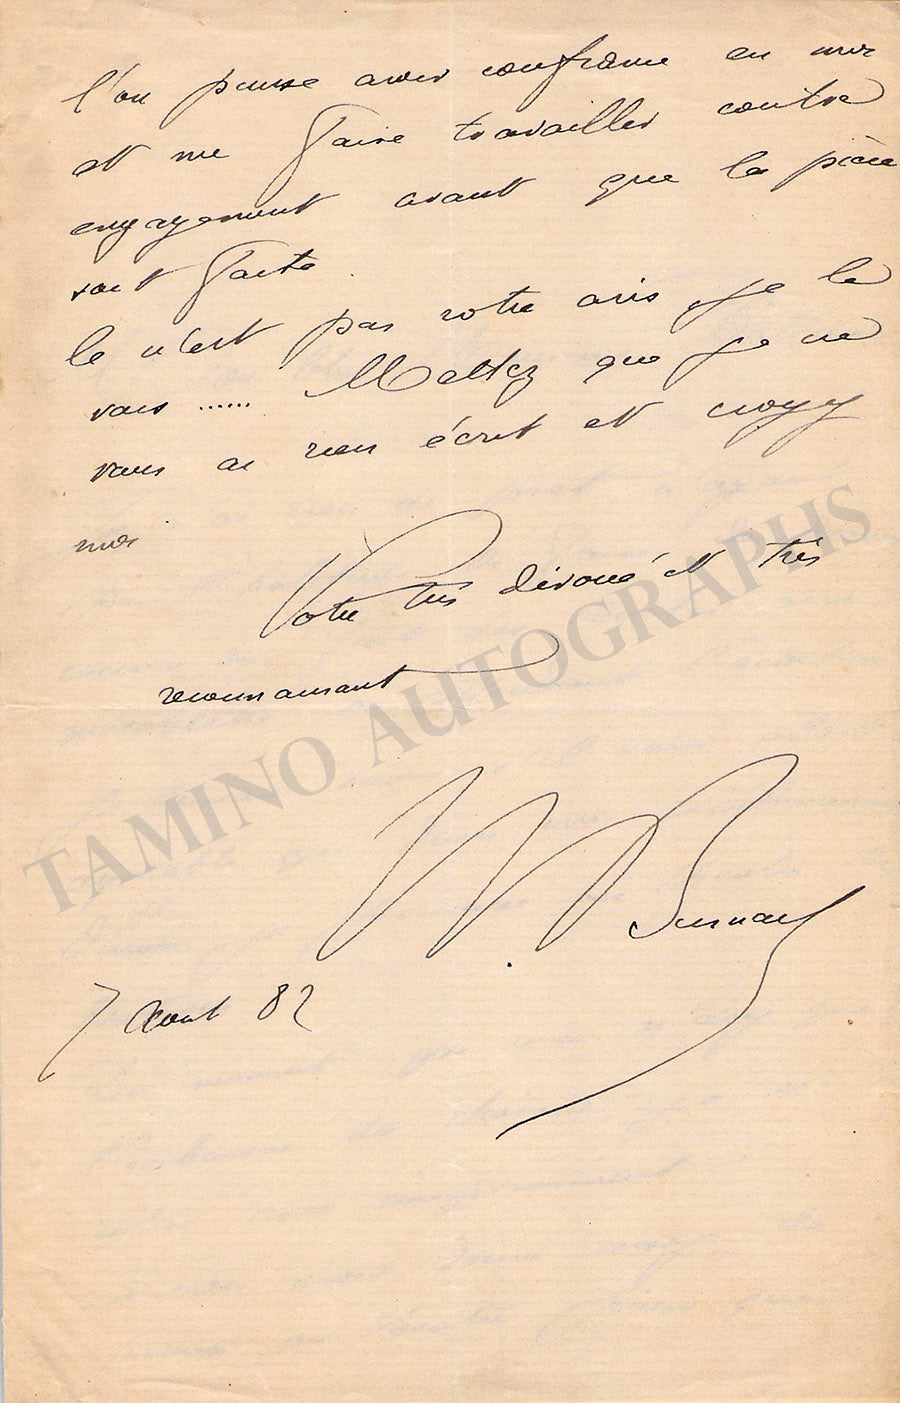 l'on puisse avoir confiance en moi
et me faire travailler contre
engagement avant que la pièce
soit faite
Ce n'est pas votre avis, je le
sais ...... Mettez que je ne
vous ai rien écrit et croyez
moi
Votre très dévoué et très
reconnaissant
Burnand
7 Aout 82
TAMINO AUTOGRAPHS